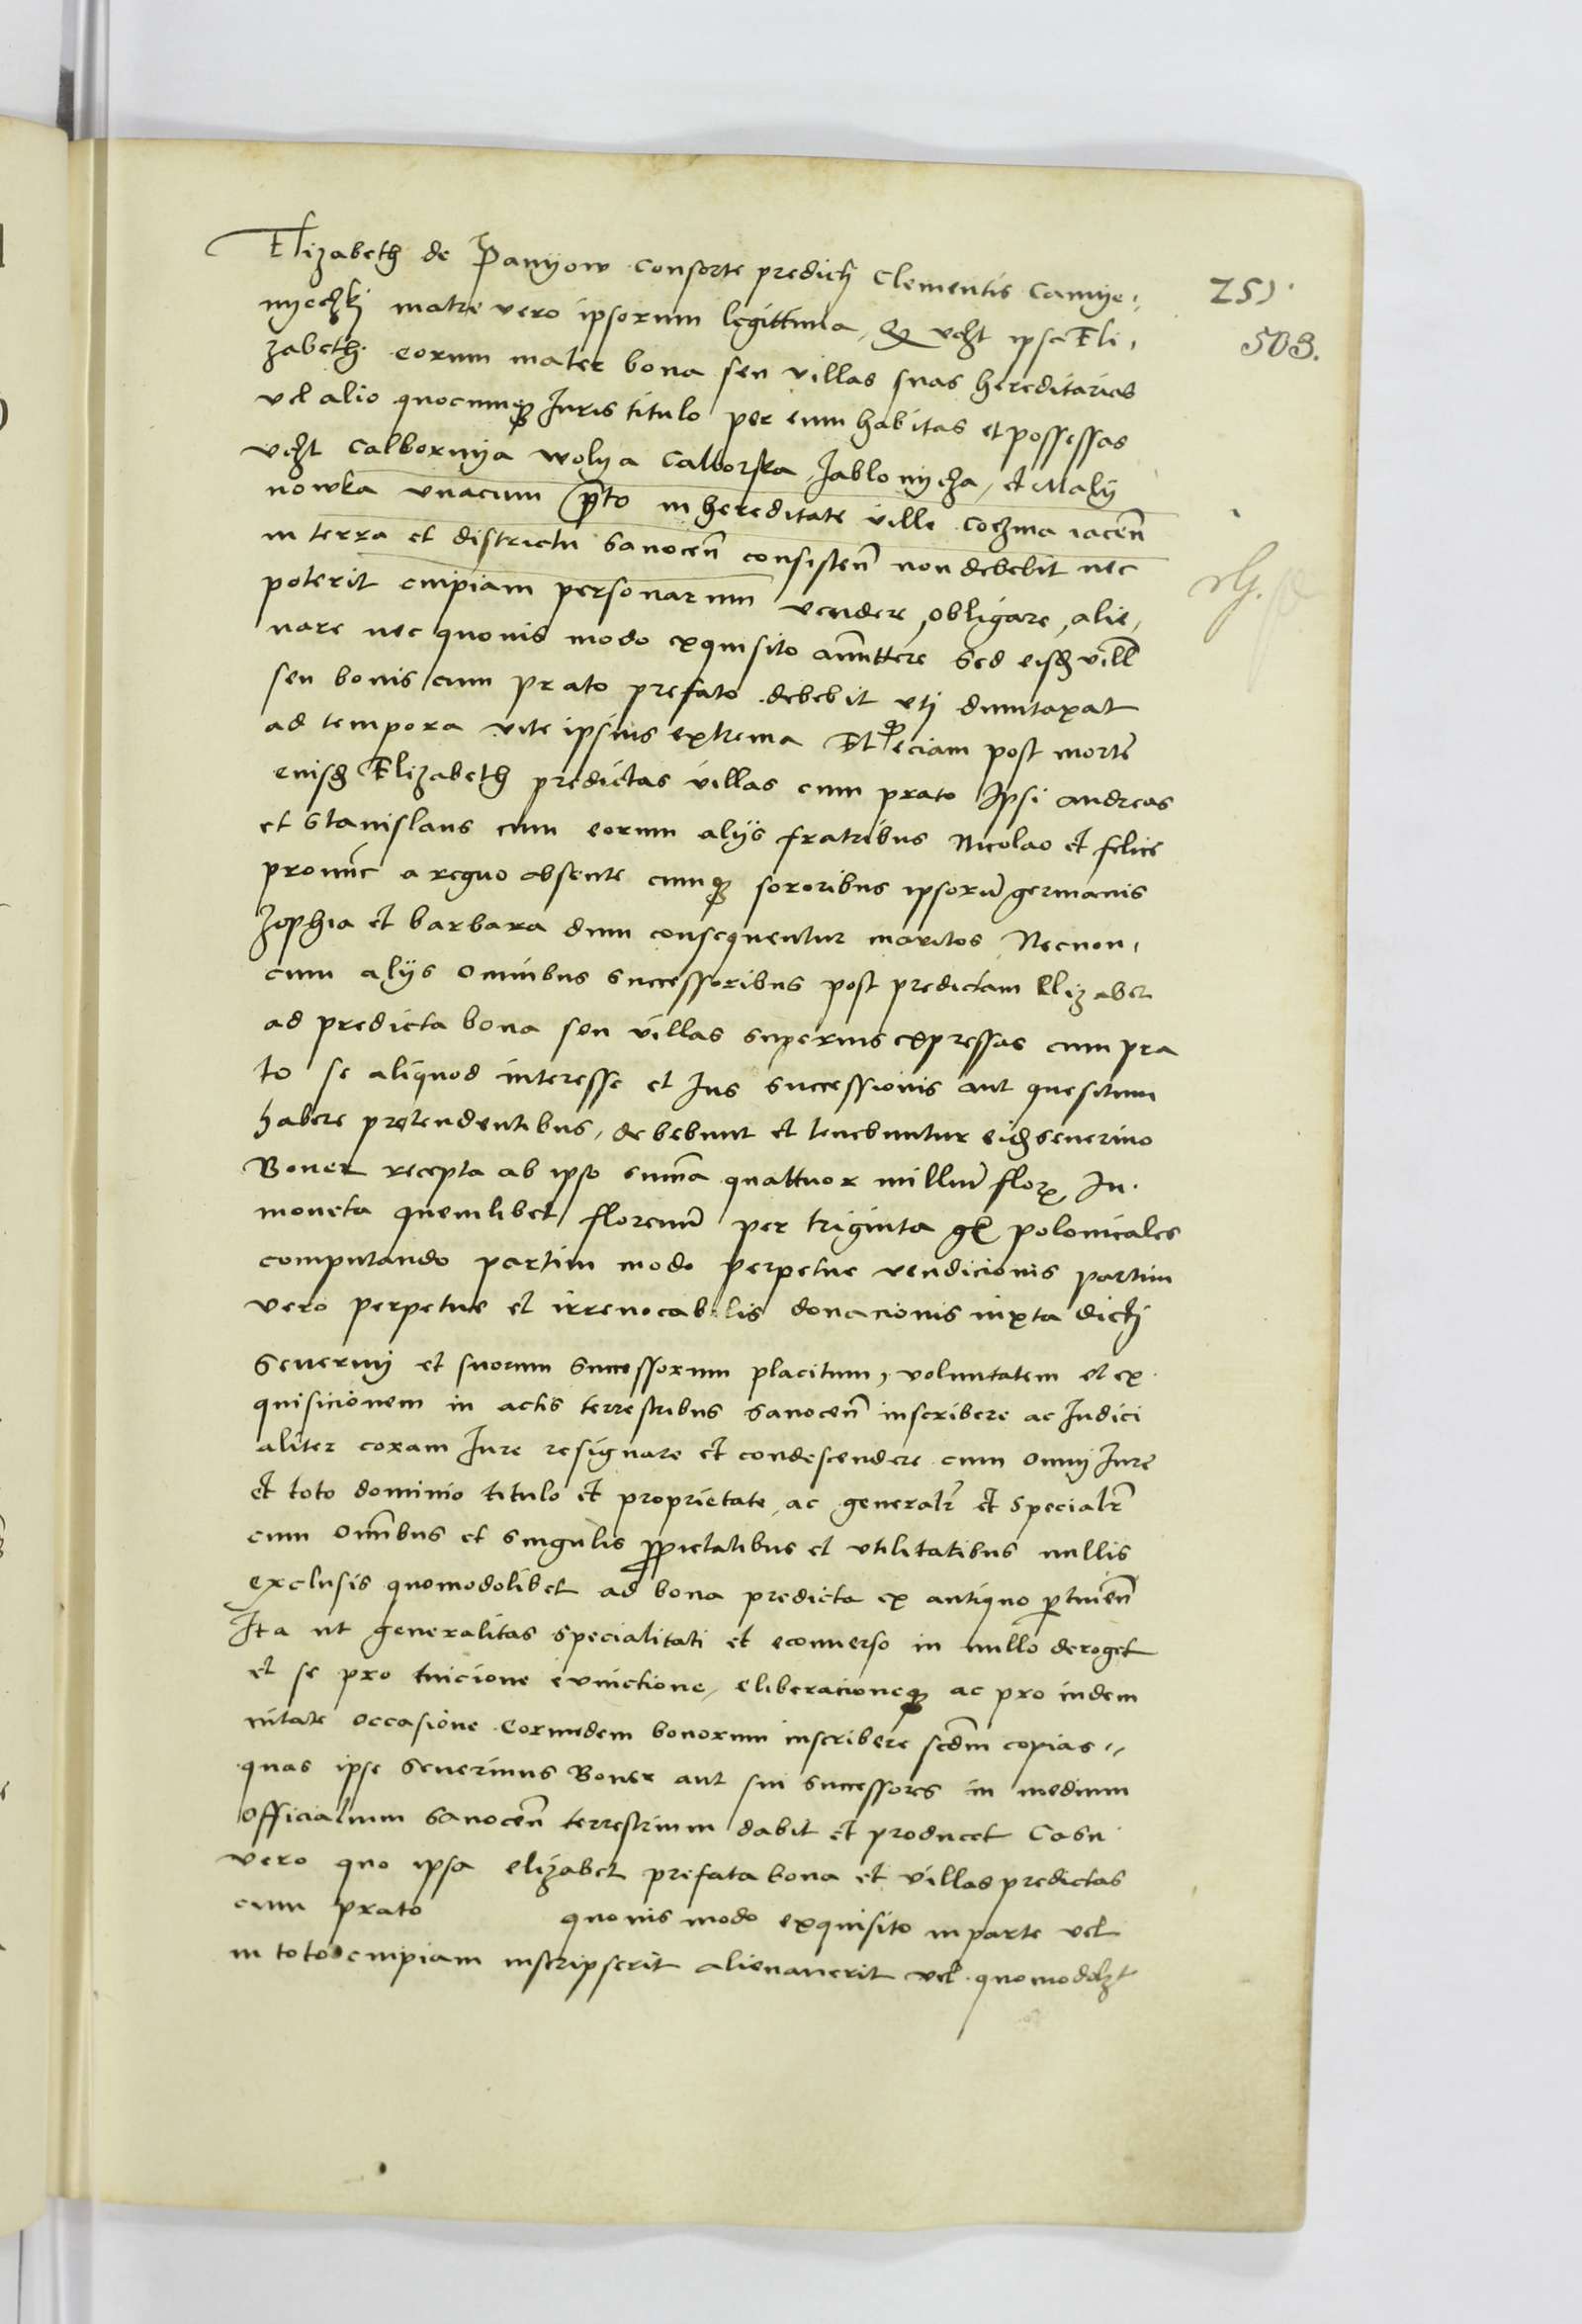 Elizabeth de Panyow consorte predicti Clementis Camye,
nyeczkj matre vero ipsorum legittima, Q vczt ipsa Eli,
zabeth eorum mater bona seu villas suas hereditarias
vel alio quocumqꝫ Iuris titulo per eum habitas et possessas
vczt Calbornya wolya Calborska, Jablonycza, et Maly
nowka vnacum prto in hereditate ville Coczma iaceñ
in terra et districtu Sanoceñ consisteñ non debebit nec
poterit cuipiam personarum vendere, obligare, alie,
nare nec quouis modo exquisito amittere Sed eisd vill
seu bonis cum prato prefato debebit vtj dumtaxat
ad tempora vite ipsius extrema Et q eciam post morte
eiusd Elizabeth predictas villas cum prato Ipsi andreas
et Stanislaus cum eorum alys fratribus Nicolao et felice
pronuc a regno absente cumqꝫ sororibus ipsorū germanis
Zophia et barbara dum consequentur maritos Necnon,
cum alys omnibus successoribus post predictam Elizabet
ad predicta bona seu villas superius expressas cum pra
to se aliquod interesse et Ius successionis aut quesitum
habere pretendentibus, debebunt et tenebuntur eid Seuerino
Boner recepta ab ipso summa quattuor milliū flor In
moneta quemlibet florenū per triginta gr polonicales
computando partim modo perpetue vendicionis partim
vero perpetue et irreuocabilis donacionis iuxta dicti
Seuerinj et suorum Successorum placitum, voluntatem et ex
quisicionem in actis terrestribus Sanoceñ inscribere ac Iudici
aliter coram Iure resignare et condescendere cum omnj Iure
et toto dominio titulo et proprietate, ac generalr et specialr
cum omnibus et singulis proprietatibus et vtilitatibus nullis
exclusis quomodolibet ad bona predicta ex antiquo ptineñ
Ita ut generalitas specialitati et econuerso in nullo deroget
et se pro tuicione euictione, eliberacioneqꝫ ac pro indem
nitate occasione eorundem bonorum inscribere scdm copias,,
quas ipse Seuerinus Boner aut sui successores in medium
officialium Sanoceñ terrestrium dabit et producet Casu
vero quo ipsa elizabet prefata bona et villas predictas
cum prato quouis modo exquisito in parte vel
in toto cuipiam inscripserit alienauerit vel quomodolzt
251.
503.